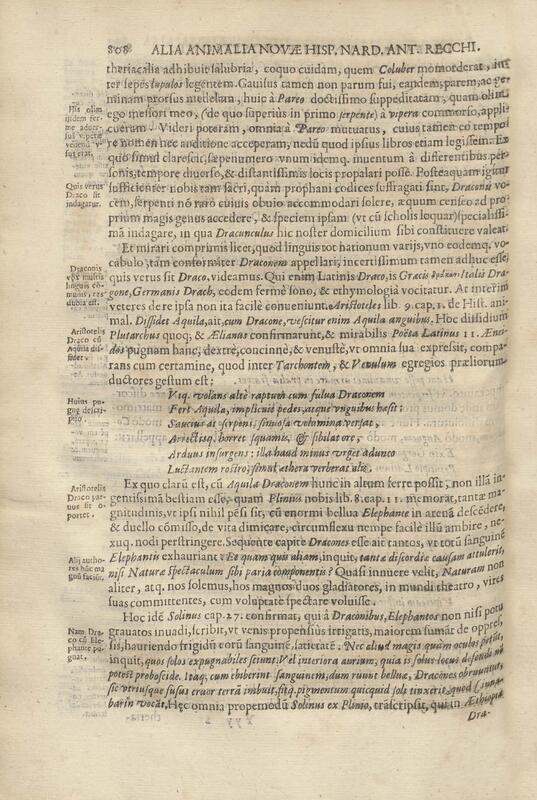 808 ALIA ANIMALIA NOVÆ HISP. NARD. ANT. RECCHI.
theriacalia adhibuit salubria, coquo cuidam, quem Coluber momorderat, in-
ter sepes lupulos legentem. Gauisus tamen non parum fui, eandem, parem, ac ge-
minam prorsus medelam, huic à Pareo doctissimo suppeditatam, quam olim
ego messori meo, (de quo superiùs in primo serpente) à vipera commorso, appli-
cueram. Videri poteram, omnia à Pareo mutuatus, cuius tamen eo tempo-
re nomen hec auditione acceperam, nedū quod ipsius libros etiam legissem. Ex
quo simul clarescit, sæpenumero vnum idemq. inuentum à differentibus per-
sonis, tempore diuerso, & distantissimis locis propalari posse. Posteaquam igitur
sufficienter nobis tam sacri, quàm prophani codices suffragati sint, Draconis vo-
cem, serpenti nō raro cuiuis obuio accommodari solere, æquum censeo ad pro-
prium magis genus accedere, & speciem ipsam (vt cū scholis loquar) specialissi-
mā indagare, in qua Dracunculus hic noster domicilium sibi constituere valeat.
Et mirari comprimis licet, quod linguis tot nationum varijs, vno eodemq. vo-
cabulo, tam conformiter Draconem appellari, incertissimum tamen adhuc esse,
quis verus sit Draco, videamus. Qui enim Latinis Draco, is Græcis δράκων Italis Dra-
gone, Germanis Drach, eodem fermè sono, & ethymologià vocitatur. At interim
veteres de re ipsa non ita facilè conueniunt. Aristoteles lib. 9. cap. 1. de Hist. ani-
mal. Dissidet Aquila, ait, cum Dracone, vescitur enim Aquila anguibus. Hoc dissidium
Plutarchus quoq; & Ælianus confirmarunt, & mirabilis Poëta Latinus 11. Ænei-
dos pugnam hanc, dextrè, concinnè, & venustè, vt omnia sua expressit, compa-
rans cum certamine, quod inter Tarchontem, & Venulum egregios præliorum
ductores gestum est;
Vtq. volans altè raptum cum fulua Draconem
Fert Aquila, implicuit pedes, atque vnguibus hæsit:
Saucius at serpens, sinuosa volumina versat,
Arrectisq. horret squamis, & sibilat ore,
Arduus insurgens: illa haud minus vrget adunco
Luctantem rostro; simul æthera verberat alis.
Ex quo clarū est, cū Aquila Draconem hunc in altum ferre possit, non illā in-
gentissimā bestiam esse, quam Plinius nobis lib. 8. cap. 11. memorat, tantæ ma-
gnitudinis, vt ipsi nihil pēsi sit, cū enormi bellua Elephante in arenā descēdere,
& duello cōmisso, de vita dimicare, circumflexu nempe facilè illū ambire, ne-
xuq. nodi perstringere. Sequente capite Dracones esse ait tantos, vt totū sanguinē
Elephantis exhauriant. Et quam quis aliam, inquit, tantæ discordiæ causam attulerit,
nisi Naturæ spectaculum sibi paria componentis? Quasi innuere velit, Naturam non
aliter, atq. nos solemus, hos magnos duos gladiatores, in mundi theatro, vires
suas committentes, cum voluptate spectare voluisse.
Hoc idē Solinus cap. 27. confirmat, qui à Draconibus, Elephantos non nisi potu
grauatos inuadi, scribit, vt venis propensiùs irrigatis, maiorem sumāt de oppres-
sis, hauriendo frigidū eorū sanguinē, satietatē. Nec aliud magis quàm oculos petūt,
inquit, quos solos expugnabiles sciunt: Vel interiora aurium, quia is solus locus defendi nō
potest proboscide. Itaq; cum ebiberint sanguinem, dum ruunt belluæ, Dracones obruuntur,
sic vtriusque fusus cruor terrā imbuit, fitq. pigmentum quicquid soli tinxerit, quod Cinna-
barin vocāt. Hęc omnia propemodū Solinus ex Plinio, trāscripsit, qui in Æthiopia
Dra-
His olim
ijsdem fer-
me aduer-
sus viperæ
venenū v-
sus erat.
Quis verus
Draco sit
indagatur.
Draconis
vox multis
linguis cō-
munis, res
dubia est.
Aristotelis
Draco cū
Aquila dis-
sidet.
Huius pu-
gnę descri-
ptio.
Aristotelis
Draco par-
uus sit o-
portet.
Alij autho-
res hūc ma-
gnū faciūt.
Nam Dra-
co cū Ele-
phante pu-
gnat.